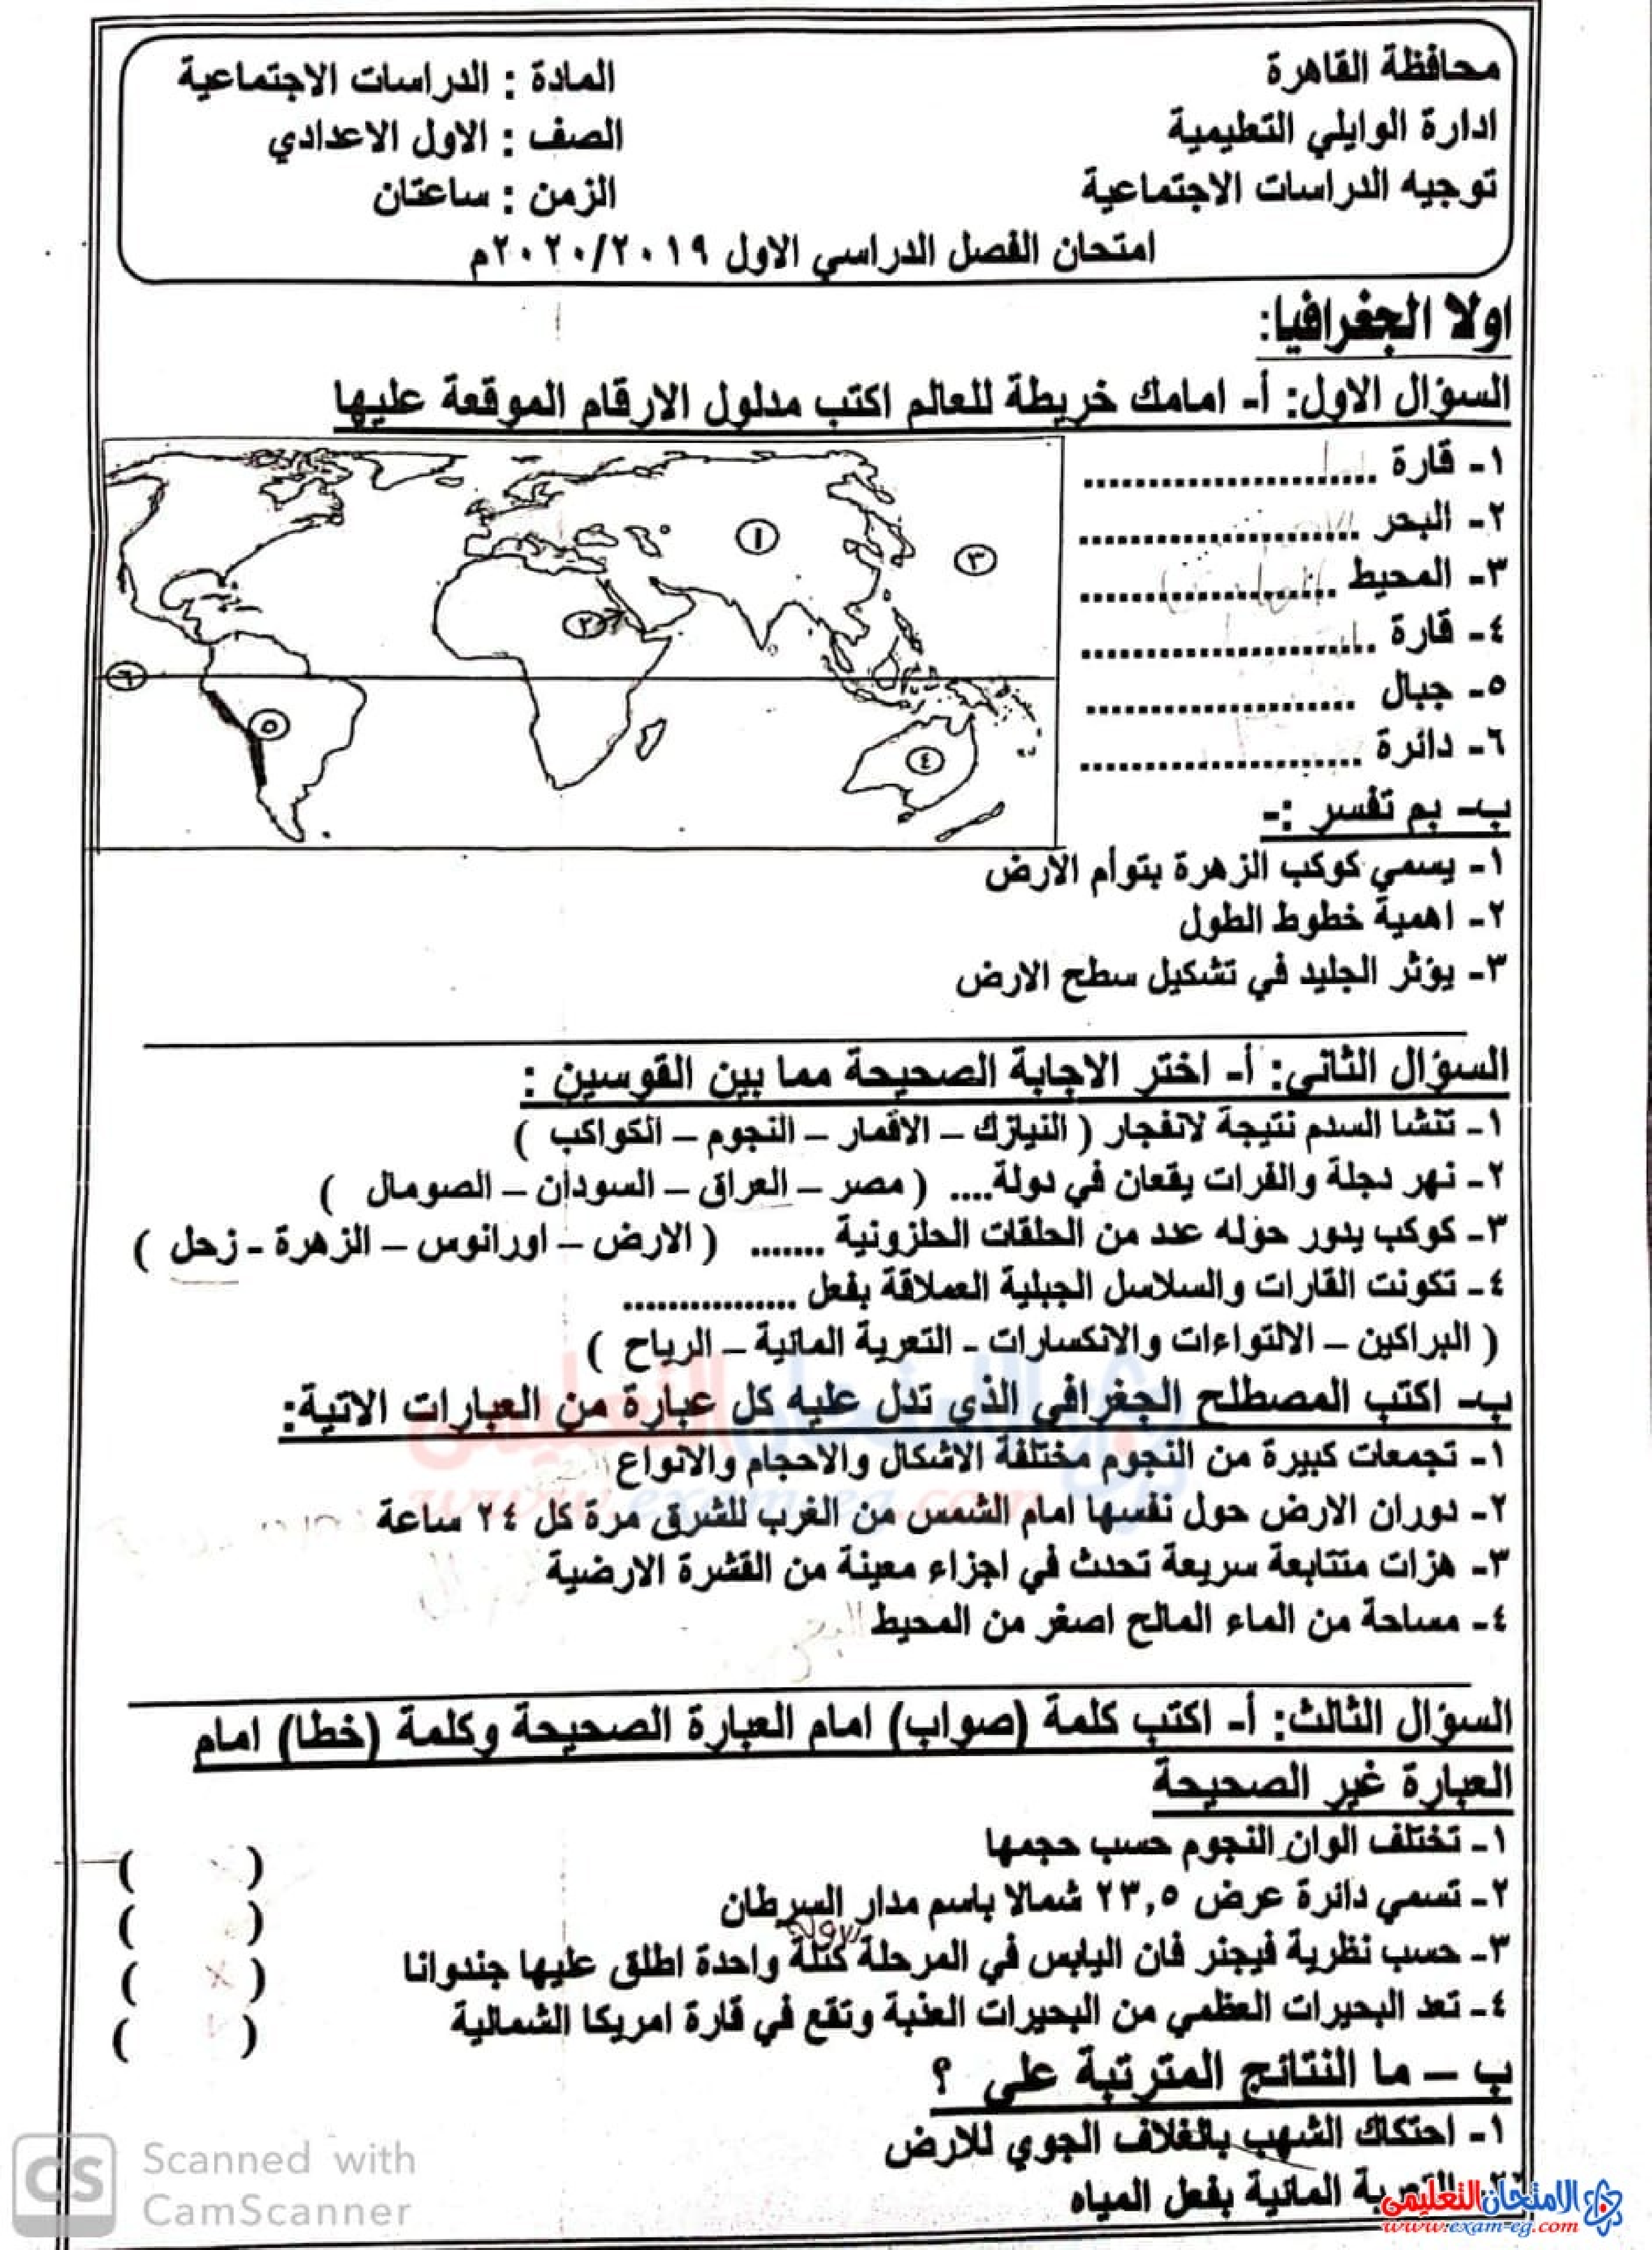 محافظة القاهرة
المادة : الدراسات الاجتماعية
ادارة الوايلي التعليمية
الصف : الاول الاعدادي
توجيه الدراسات الاجتماعية
الزمن : ساعتان
امتحان الفصل الدراسي الاول ٢٠٢٠/٢٠١٩م
اولا الجغرافيا:
السؤال الاول: أ- امامك خريطة للعالم اكتب مدلول الارقام الموقعة عليها
١- قارة .......................
٢- البحر ......................
٣- المحيط ....................
٤- قارة .......................
٥- جبال .....................
٦- دائرة ......................
١
٢
٣
٤
٥
٦
ب- بم تفسر :-
١- يسمي كوكب الزهرة بتوأم الارض
٢- اهمية خطوط الطول
٣- يؤثر الجليد في تشكيل سطح الارض
السؤال الثاني: أ- اختر الاجابة الصحيحة مما بين القوسين :
١- تنشا السدم نتيجة لانفجار ( النيازك – الاقمار – النجوم – الكواكب )
٢- نهر دجلة والفرات يقعان في دولة.... ( مصر – العراق – السودان – الصومال )
٣- كوكب يدور حوله عدد من الحلقات الحلزونية ....... ( الارض – اورانوس – الزهرة - زحل )
٤- تكونت القارات والسلاسل الجبلية العملاقة بفعل ................
( البراكين – الالتواءات والانكسارات - التعرية المائية – الرياح )
ب- اكتب المصطلح الجغرافي الذي تدل عليه كل عبارة من العبارات الاتية:
١- تجمعات كبيرة من النجوم مختلفة الاشكال والاحجام والانواع
٢- دوران الارض حول نفسها امام الشمس من الغرب للشرق مرة كل ٢٤ ساعة
٣- هزات متتابعة سريعة تحدث في اجزاء معينة من القشرة الارضية
٤- مساحة من الماء المالح اصغر من المحيط
السؤال الثالث: أ- اكتب كلمة (صواب) امام العبارة الصحيحة وكلمة (خطا) امام
العبارة غير الصحيحة
١- تختلف الوان النجوم حسب حجمها ( )
٢- تسمي دائرة عرض ٢٣,٥ شمالا باسم مدار السرطان ( )
الاولى
٣- حسب نظرية فيجنر فان اليابس في المرحلة كتلة واحدة اطلق عليها جندوانا ( × )
٤- تعد البحيرات العظمي من البحيرات العذبة وتقع في قارة امريكا الشمالية ( )
ب – ما النتائج المترتبة علي ؟
١- احتكاك الشهب بالغلاف الجوي للارض
المائية بفعل المياه
الامتحان التعليمى
www.exam-eg.com
CS Scanned with
CamScanner
الامتحان التعليمى
www.exam-eg.com